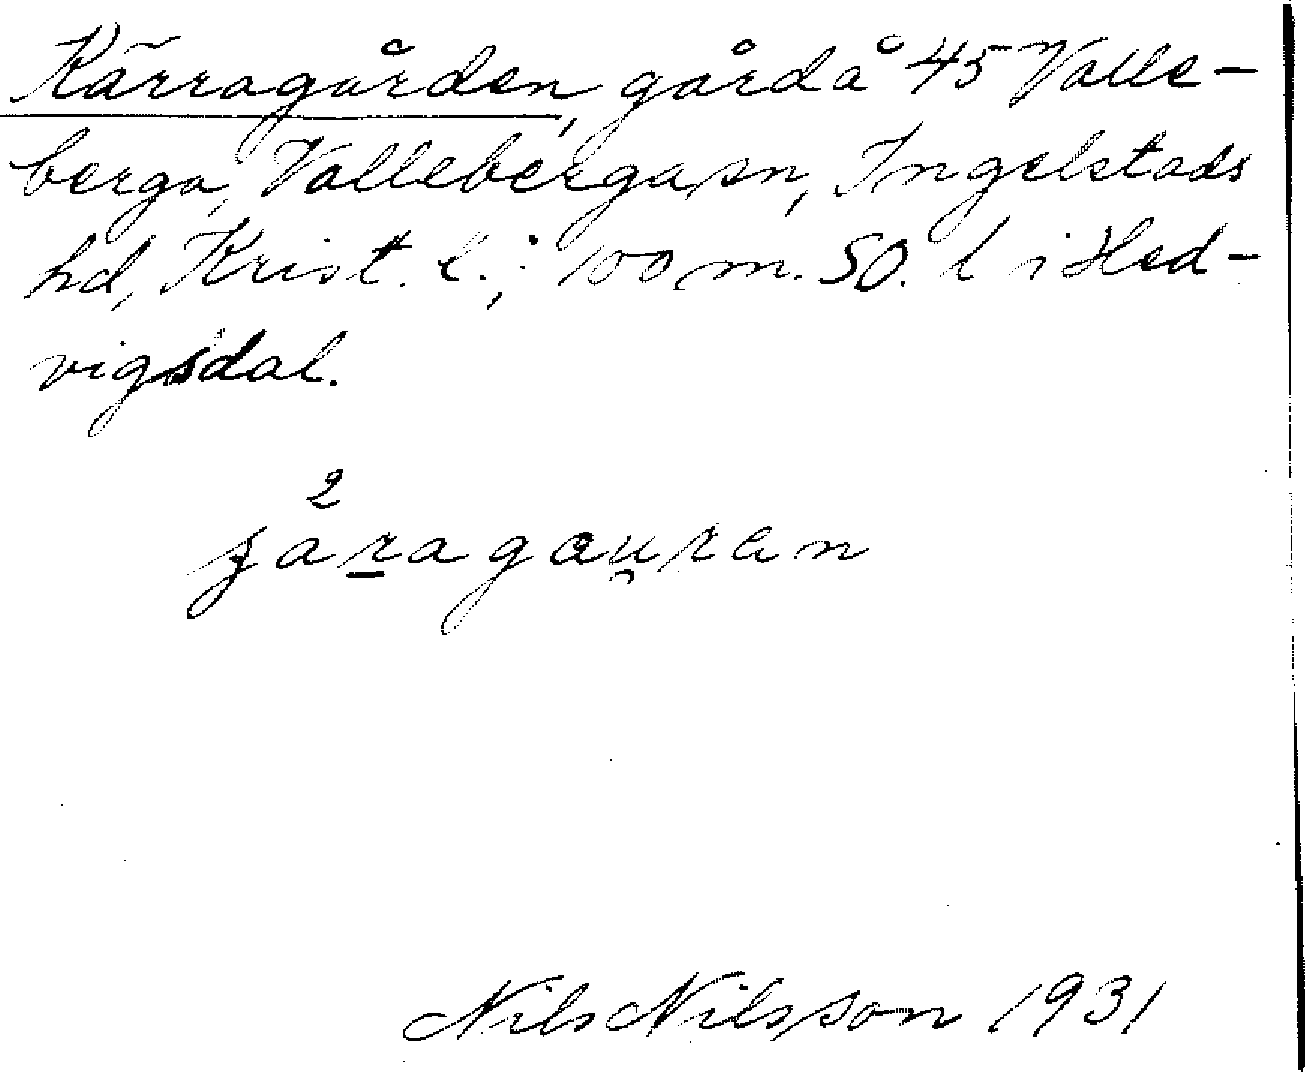 Kärragården, gård å 45 Valle-
berga, Vallebergasn, Ingelstads
hd, Krist. l.; 100 m. SO. l i Hed-
vigsdal.
2
jåragauran
Nils Nilsson 1931